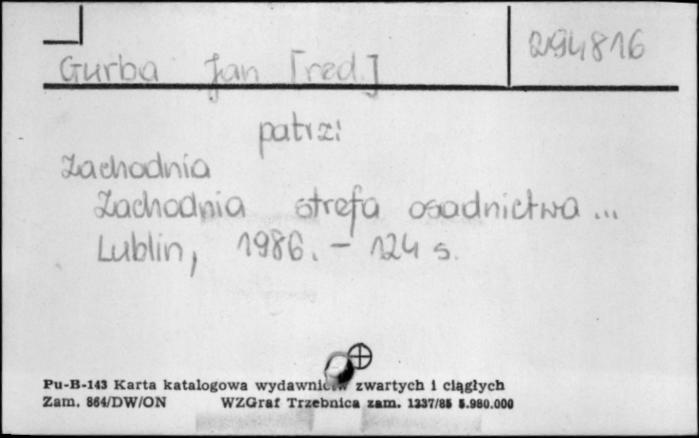 Gurba Jan [red.] 294816
patrz:
Zachodnia
Zachodnia strefa osadnictwa...
Lublin, 1986. - 124 s.
Pu-B-143 Karta katalogowa wydawnictw zwartych i ciągłych
Zam. 864/DW/ON WZGraf Trzebnica zam. 1337/85 5.980.000